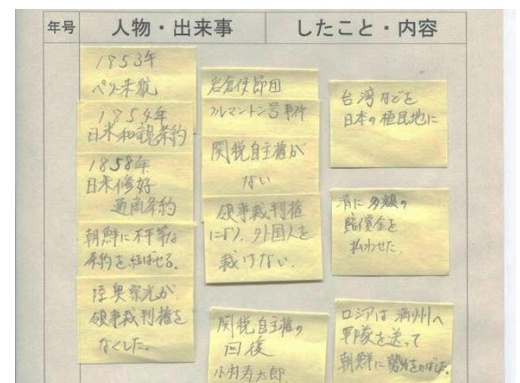 年号
人物・出来事
したこと・内容
1853年
ペリー来航
1854年
日米和親条約
1858年
日米修好
通商条約
朝鮮に不平等な
条約を結ばせる。
陸奥宗光が
領事裁判権を
なくした。
岩倉使節団
ノルマントン号事件
関税自主権が
ない
領事裁判権
により、外国人を
裁けない。
関税自主権の
回復
小村寿太郎
台湾などを
日本の植民地に
清に多額の
賠償金を
払わせた。
ロシアは満州へ
軍隊を送って
朝鮮に勢力をのばした